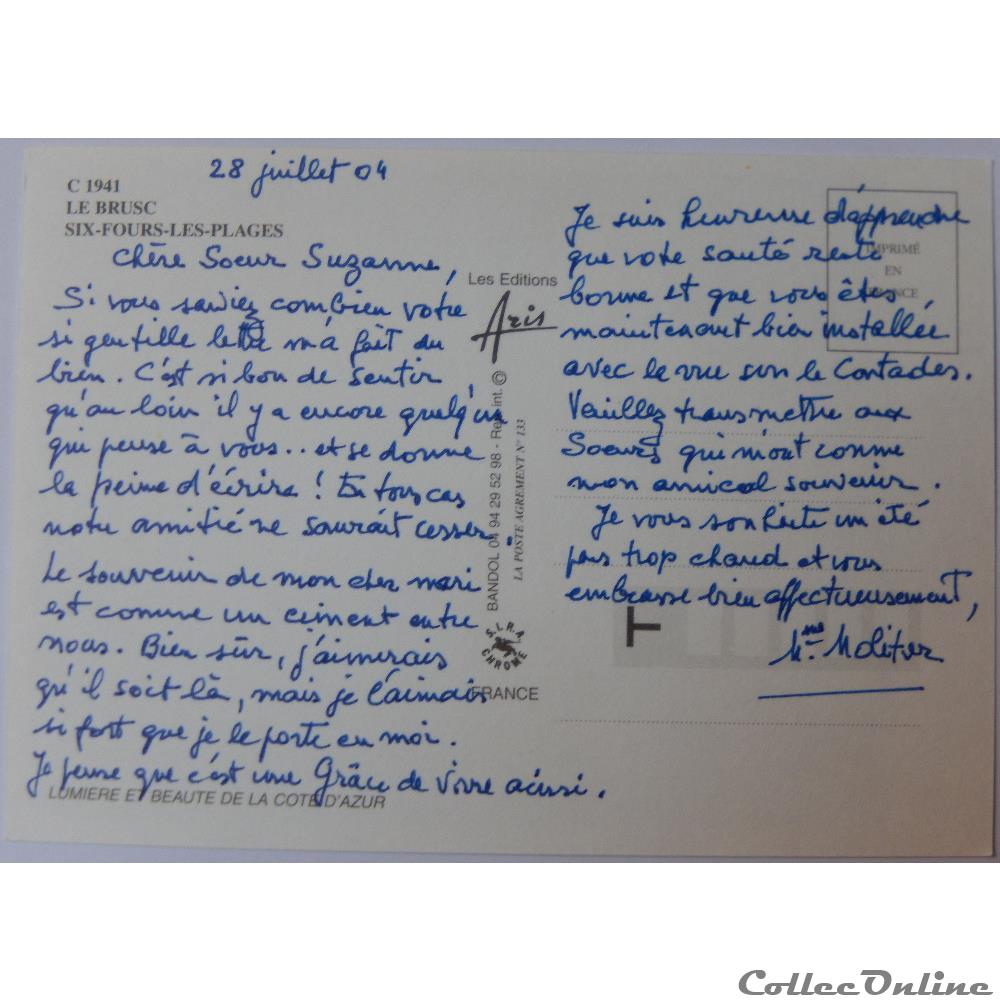 28 juillet 04
C 1941
LE BRUSC
SIX-FOURS-LES-PLAGES
Chère Soeur Suzanne,
Si vous saviez combien votre
si gentille lettre m'a fait du
bien. C'est si bon de sentir
qu'au loin il y a encore quelqu'un
qui pense à vous.. et se donne
la peine d'écrire ! En tous cas
notre amitié ne saurait cesser.
Le souvenir de mon cher mari
est comme un ciment entre
nous. Bien sûr, j'aimerais
qu'il soit là, mais je l'aimais
si fort que je le porte en moi.
Je pense que c'est une Grâce de vivre ainsi.
LUMIERE ET BEAUTE DE LA COTE D'AZUR
Les Editions
Aris
BANDOL 04 94 29 52 98 - Rep. int. ©
LA POSTE AGREMENT N° 133
S.I.R.A.
CHROME
FRANCE
Je suis heureuse d'apprendre
que votre santé reste
bonne et que vous êtes,
maintenant bien installée,
avec le vue sur le Contades.
Veuillez transmettre aux
Soeurs qui m'ont connue
mon amical souvenir.
Je vous souhaite un été
pas trop chaud et vous
embrasse bien affectueusement,
Mme Molitor
IMPRIMÉ
EN
FRANCE
T
CollecOnline